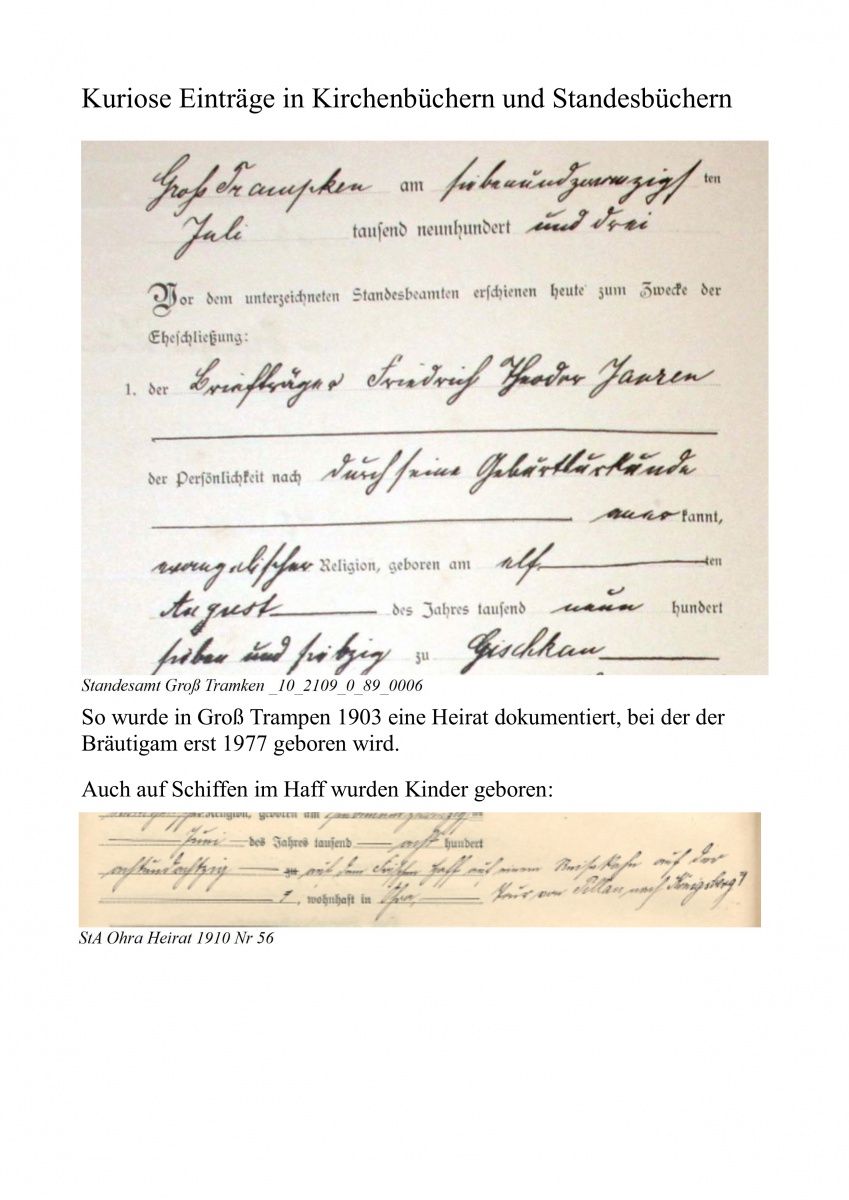 Kuriose Einträge in Kirchenbüchern und Standesbüchern
Groß Trampken am siebenundzwanzigsten
Juli tausend neunhundert und drei
Vor dem unterzeichneten Standesbeamten erschienen heute zum Zwecke der
Eheschließung:
1. der Briefträger Friedrich Theodor Janzen
der Persönlichkeit nach durch seine Geburtsurkunde
anerkannt,
evangelischer Religion, geboren am elften
August des Jahres tausend neun hundert
sieben und siebzig zu Gischkau
Standesamt Groß Tramken _10_2109_0_89_0006
So wurde in Groß Trampen 1903 eine Heirat dokumentiert, bei der der
Bräutigam erst 1977 geboren wird.
Auch auf Schiffen im Haff wurden Kinder geboren:
Religion, geboren am siebenundzwanzig
Juni des Jahres tausend acht hundert
achtundachtzig auf dem Frischen Haff auf einem Reisekahn auf der
Tour von Pillau nach Königsberg
, wohnhaft in Ohra,
StA Ohra Heirat 1910 Nr 56